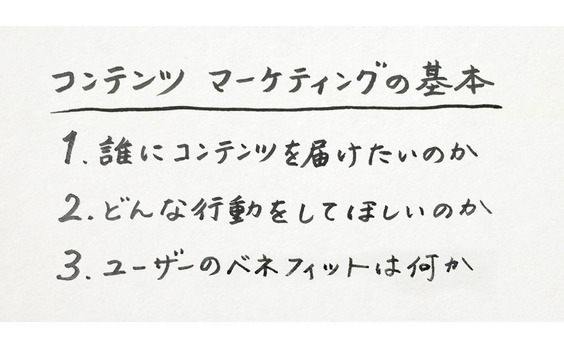 コンテンツ マーケティングの基本
1. 誰にコンテンツを届けたいのか
2. どんな行動をしてほしいのか
3. ユーザーのベネフィットは何か